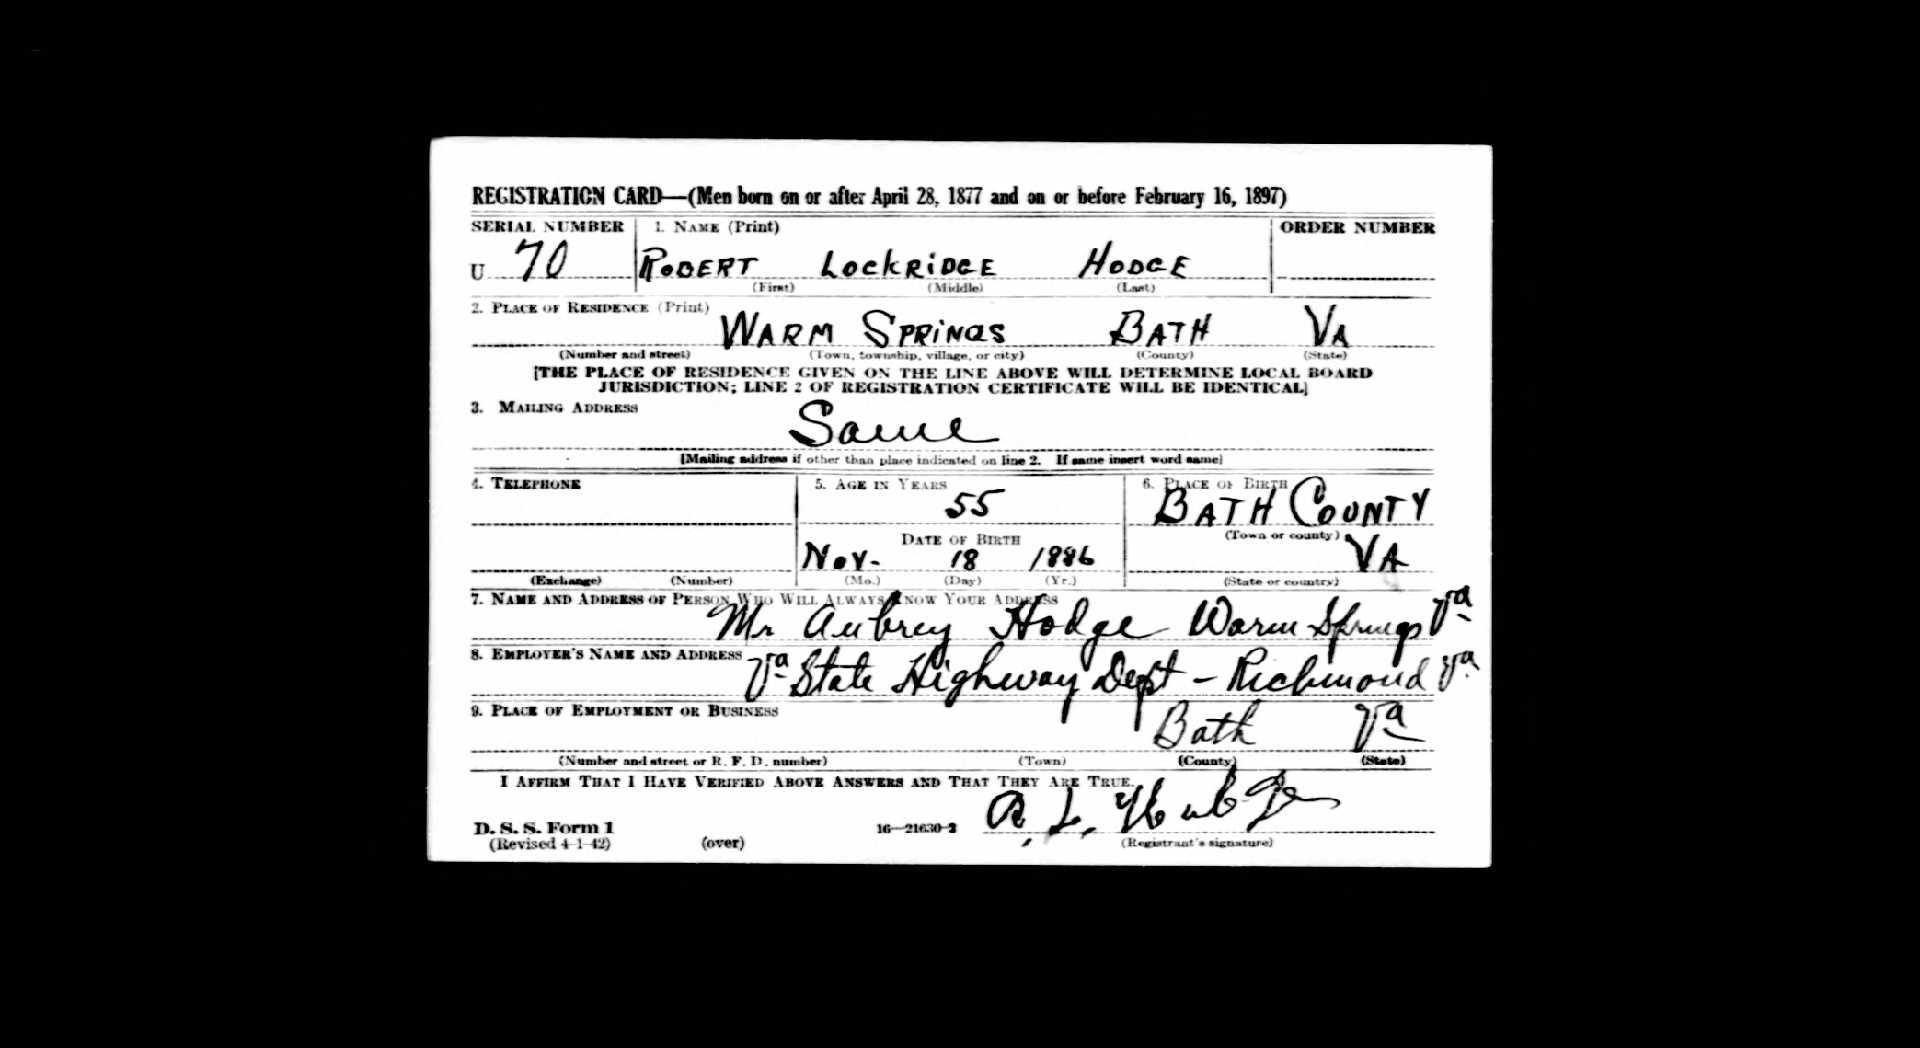 REGISTRATION CARD—(Men born on or after April 28, 1877 and on or before February 16, 1897)
SERIAL NUMBER 1. NAME (Print) ORDER NUMBER
U 70 ROBERT LOCKRIDGE HODGE
(First) (Middle) (Last)
2. PLACE OF RESIDENCE (Print)
WARM SPRINGS BATH VA
(Number and street) (Town, township, village, or city) (County) (State)
[THE PLACE OF RESIDENCE GIVEN ON THE LINE ABOVE WILL DETERMINE LOCAL BOARD
JURISDICTION; LINE 2 OF REGISTRATION CERTIFICATE WILL BE IDENTICAL]
3. MAILING ADDRESS
Same
[Mailing address if other than place indicated on line 2. If same insert word same]
4. TELEPHONE 5. AGE IN YEARS 6. PLACE OF BIRTH
55 BATH COUNTY
DATE OF BIRTH (Town or county)
Nov. 18 1886 VA
(Exchange) (Number) (Mo.) (Day) (Yr.) (State or country)
7. NAME AND ADDRESS OF PERSON WHO WILL ALWAYS KNOW YOUR ADDRESS
Mr Aubrey Hodge Warm Springs Va
8. EMPLOYER'S NAME AND ADDRESS
Va State Highway Dept - Richmond Va
9. PLACE OF EMPLOYMENT OR BUSINESS
Bath Va
(Number and street or R. F. D. number) (Town) (County) (State)
I AFFIRM THAT I HAVE VERIFIED ABOVE ANSWERS AND THAT THEY ARE TRUE.
R. L.
D. S. S. Form 1 16—21630-2
(Revised 4-1-42) (over) (Registrant's signature)